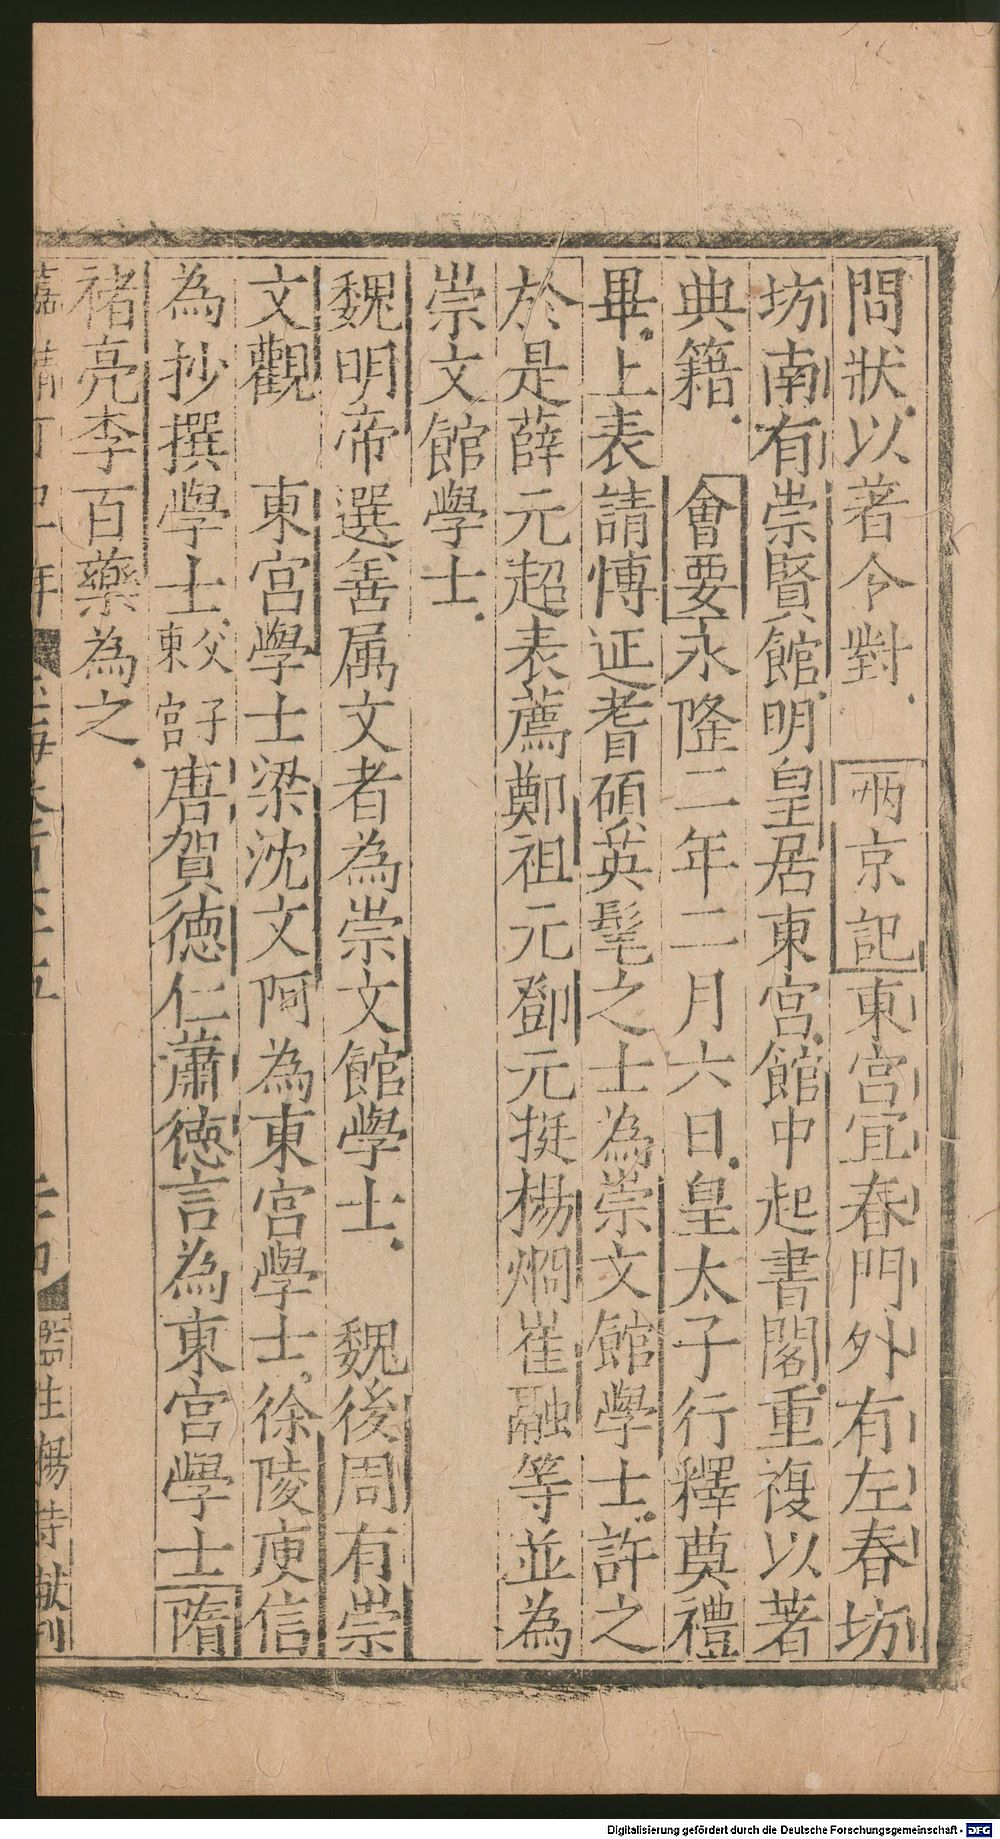 問狀以著令對　兩京記東宮宜春門外有左春坊
坊南有崇賢館明皇居東宮館中起書閣重複以著
典籍　會要永隆二年二月六日皇太子行釋奠禮
畢上表請愽延耆碩英髦之士為崇文館學士許之
於是薛元超表薦鄭祖元鄧元挺楊烱崔融等並為
崇文館學士
魏明帝選善属文者為崇文館學士　魏後周有崇
文觀　東宮學士梁沈文阿為東宮學士徐陵庾信
為抄撰學士父子東宮唐賀德仁蕭德言為東宮學士隋
禇亮李百藥為之
監生楊
Digitalisierung gefördert durch die Deutsche Forschungsgemeinschaft - DFG